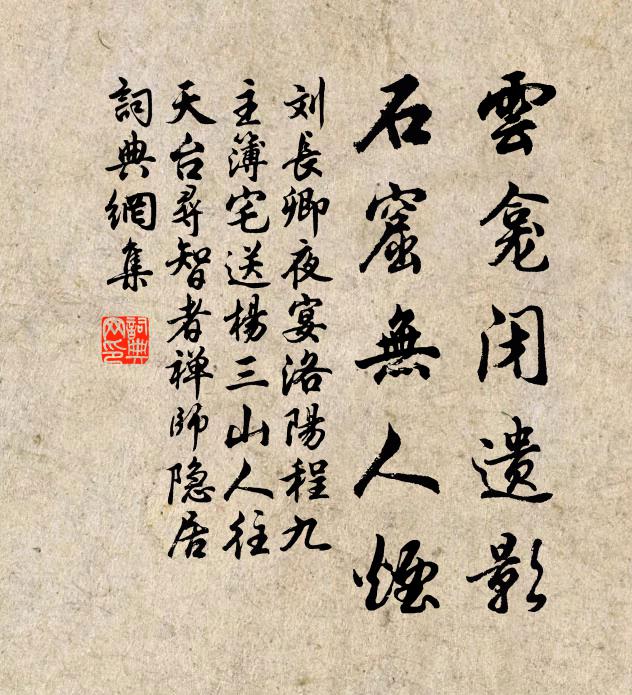 雲龕闭遗影
石窟無人煙
刘長卿夜宴洛陽程九
主簿宅送楊三山人往
天台尋智者禅師隐居
詞典網集
詞典
网印